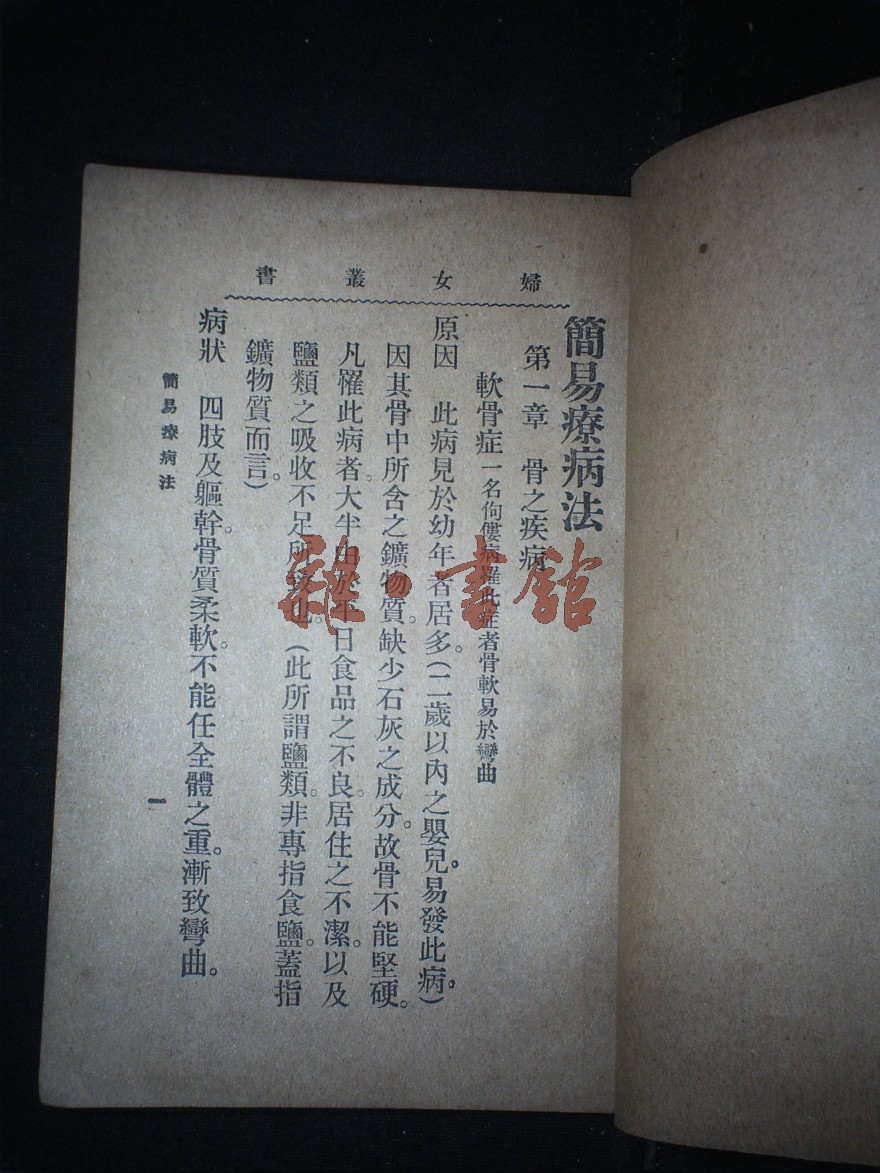 婦女叢書
簡易療病法
第一章　骨之疾病
軟骨症一名佝僂病罹此症者骨軟易於彎曲
原因　此病見於幼年者居多。(二歲以內之嬰兒。易發此病。)
因其骨中所含之鑛物質。缺少石灰之成分。故骨不能堅硬。
凡罹此病者。大半由於平日食品之不良。居住之不潔。以及
鹽類之吸收不足所致也。(此所謂鹽類。非專指食鹽。蓋指
鑛物質而言。)
病狀　四肢及軀幹。骨質柔軟。不能任全體之重。漸致彎曲。
簡易療病法
一
雜·書館